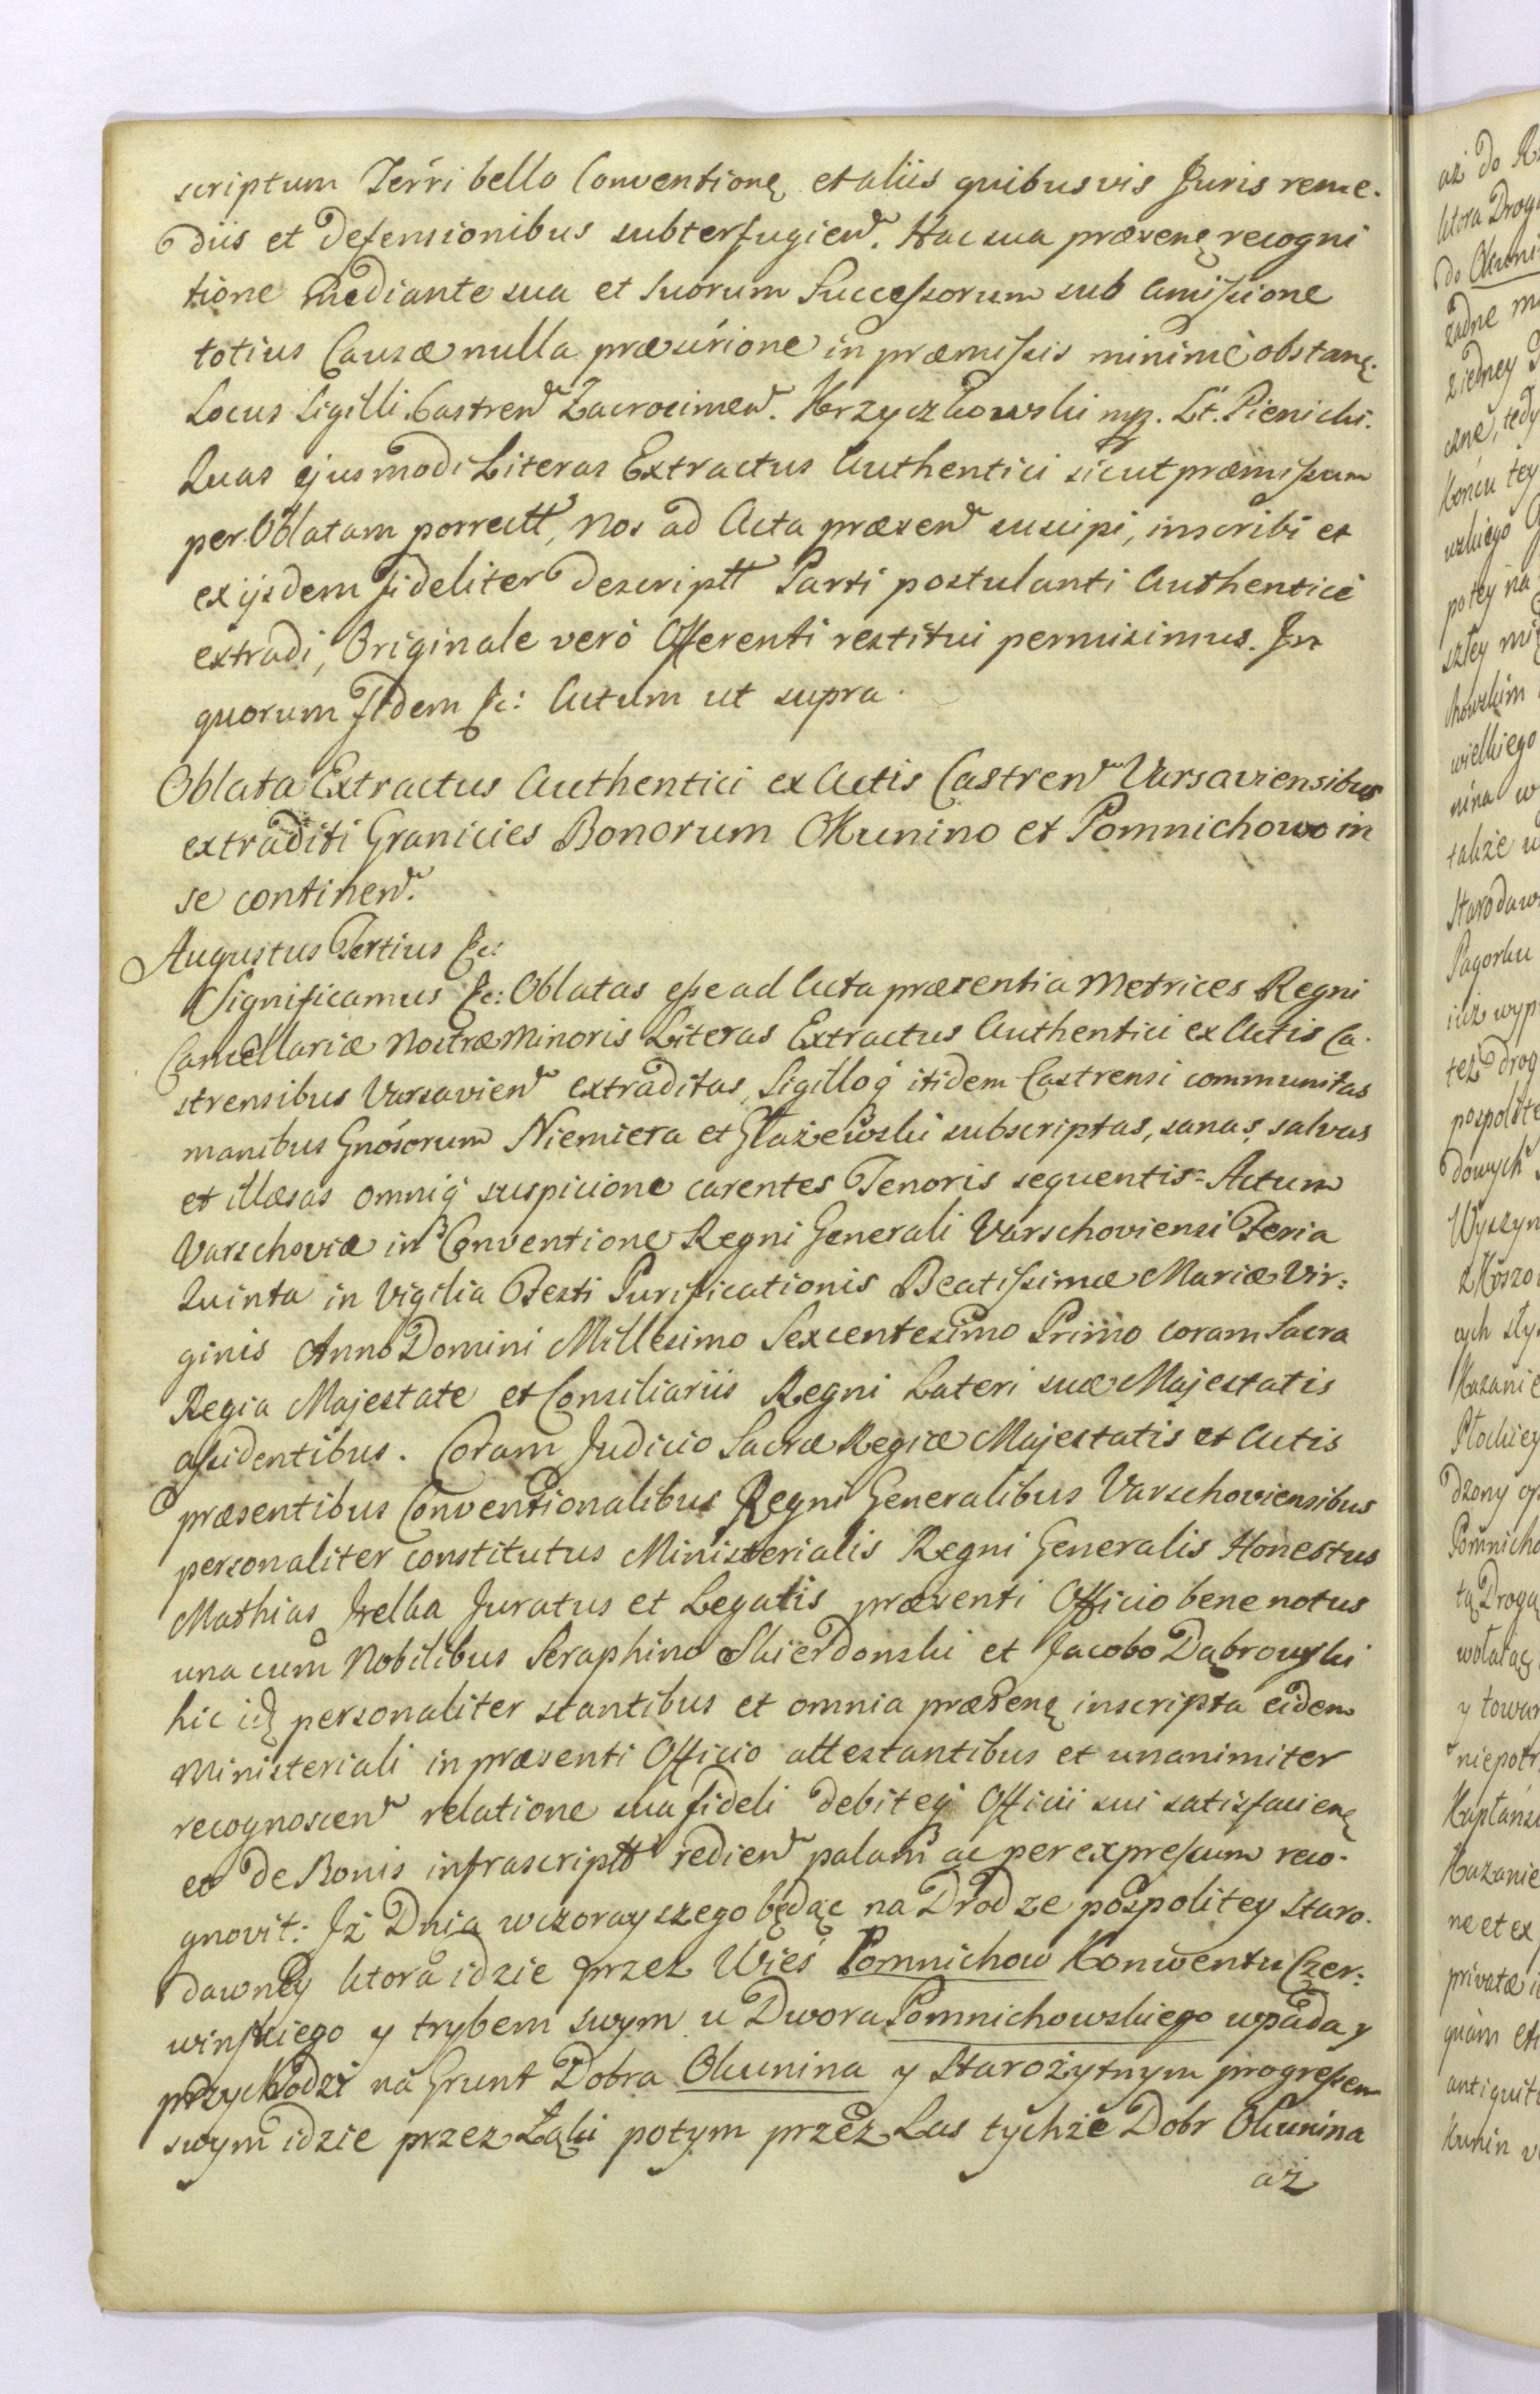 scriptum Terri bello Conventionę et aliis quibusvis Juris reme-
diis et defensionibus subterfugien. Hac sua præsenę recogni
tione mediante sua et suorum Successorum sub amissione
totius Causæ nulla præ in præmissis minimè obstanę.
Locus Sigilli Castren Zacrocimen. Krzyczkowski mp. Lt. Pienicki.
Quas ejusmodi Literas Extractus Authentici sicut præmissum
per Oblatam porrectt, Nos ad Acta præsen suscipi, inscribi et
ex ijsdem fideliter descriptt Parti postulanti Authenticè
extradi, Originale verò Offerenti restitui permisimus. In
quorum fidem &c: Actum ut supra.
Oblata Extractus Authentici ex Actis Castren Varsaviensibus
extraditi Granicies Bonorum Okunino et Pomnichowo in
se continen.
Augustus Tertius &c:
Significamus &c: Oblatas esse ad Acta præsentia Metrices Regni
Cancellariæ Nostræ Minoris Literas Extractus Authentici ex Actis Ca-
strensibus Varsavien extraditas, Sigilloq itidem Castrensi communitas
manibus Gnosorum Niemiera et Głażewski subscriptas, sanas, salvas
et illæsas omniq suspicione carentes Tenoris sequentis: Actum
Varschoviæ in Conventione Regni Generali Varschoviensi Feria
Quinta in Vigilia Festi Purificationis Beatissimæ Mariæ Vir:
ginis Anno Domini Millesimo Sexcentesimo Primo coram Sacra
Regia Majestate et Consiliariis Regni Lateri suæ Majestatis
assidentibus. Coram Judicio Sacræ Regiæ Majestatis et Actis
præsentibus Conventionalibus Regni Generalibus Varschoviensibus
personaliter constitutus Ministerialis Regni Generalis Honestus
Mathias Juratus et Legatis præsenti Officio bene notus
una cum Nobilibus Seraphino Skierdonski et Jacobo Dąbrowski
hic idę personaliter stantibus et omnia præsenę inscripta eidem
Ministeriali in præsenti Officio attestantibus et unanimiter
recognoscen relatione sua fideli debiteq Officii sui satisfacienę
et de Bonis infrascriptt redien palam ac per expressum reco-
gnovit: Iż Dnia wczorayszego będąc na Drodze pospolitey staro-
dawney która idzie przez Wieś Pomnichow Konwentu Czer:
winskiego y trybem swym u Dwora Pomnichowskiego wpada y
przychodzi na Grunt Dobra Okunina y Starożytnym progressem
swym idzie przez Łąki potym przez Las tychże Dobr Okunina
aż